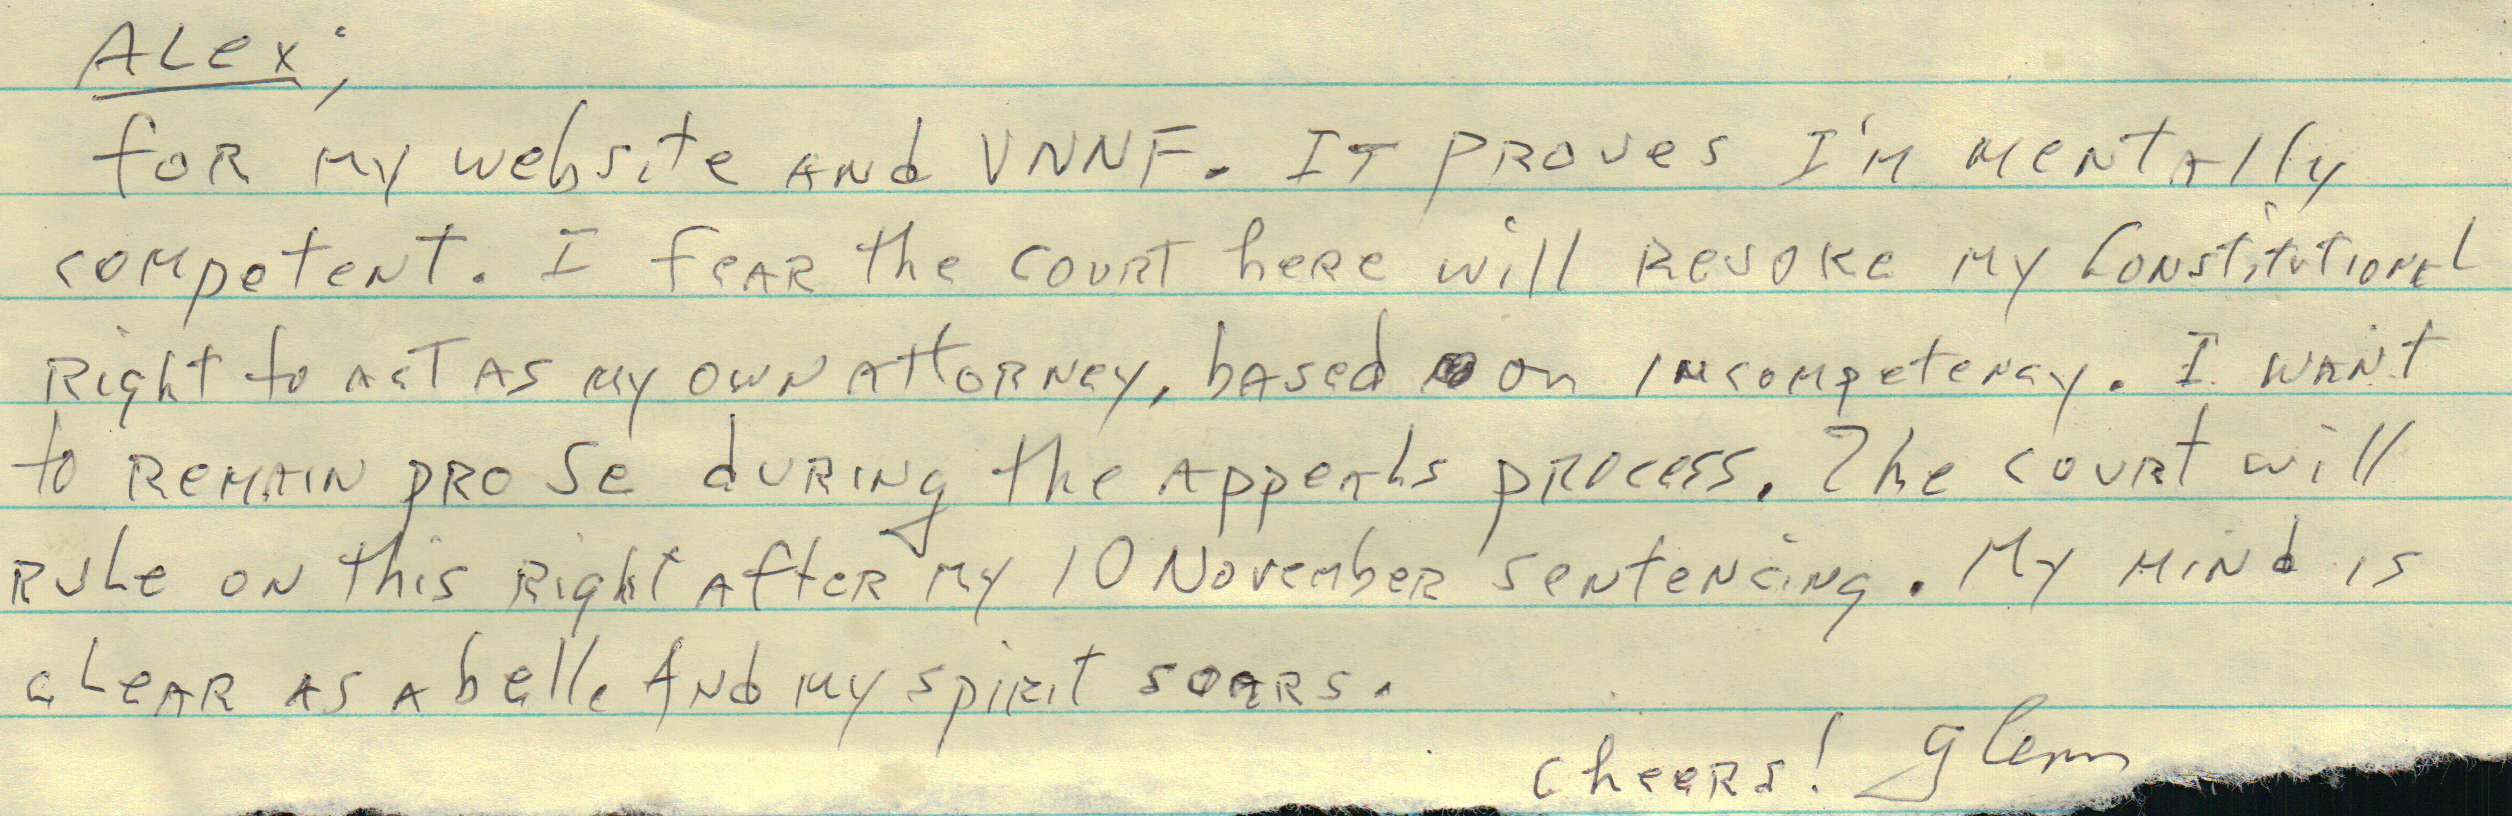 Alex;
for my website and VNNF. It proves I'm mentally
competent. I fear the court here will revoke my Constitutional
right to act as my own attorney, based on incompetency. I want
to remain pro se during the appeals process. The court will
rule on this right after my 10 November sentencing. My mind is
clear as a bell. And my spirit soars.
Cheers! Glenn